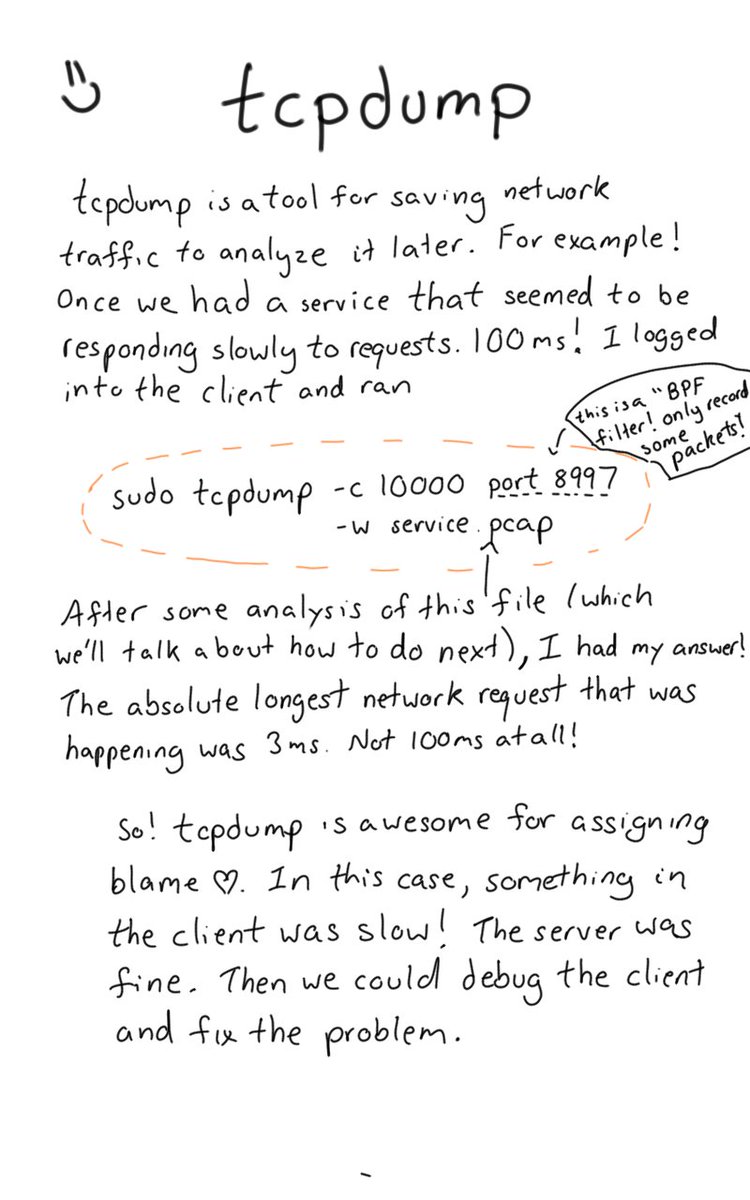 tcpdump
tcpdump is a tool for saving network
traffic to analyze it later. For example!
Once we had a service that seemed to be
responding slowly to requests. 100 ms! I logged
into the client and ran
this is a "BPF
filter! only record
some
packets!
sudo tcpdump -c 10000 port 8997
-w service.pcap
After some analysis of this file (which
we'll talk about how to do next), I had my answer!
The absolute longest network request that was
happening was 3 ms. Not 100ms at all!
So! tcpdump is awesome for assigning
blame ♡. In this case, something in
the client was slow! The server was
fine. Then we could debug the client
and fix the problem.